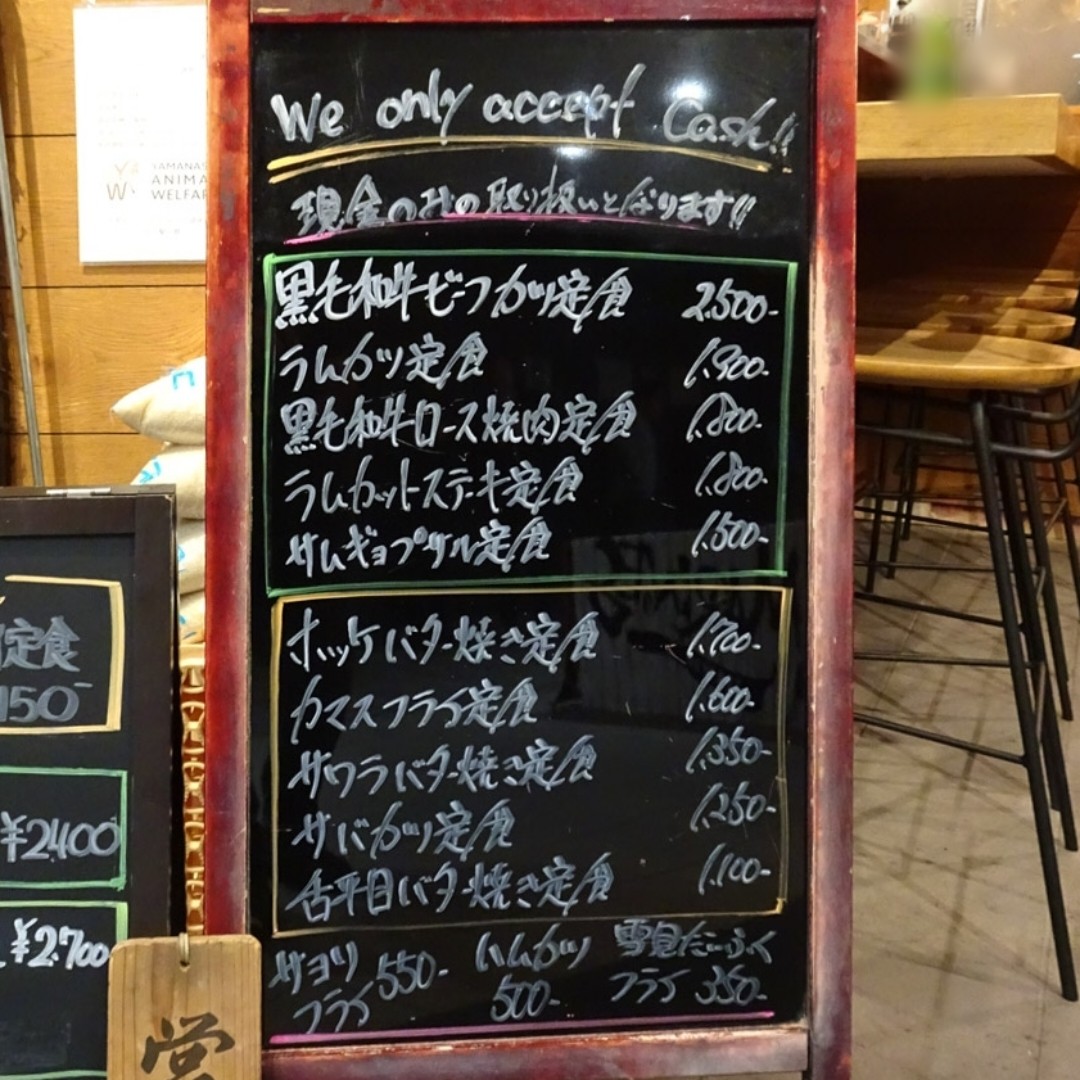 We only accept Cash!!
現金のみの取り扱いとなります!!
黒毛和牛ビーフカツ定食 2,500-
ラムカツ定食 1,900-
黒毛和牛ロース焼肉定食 1,800-
ラムカットステーキ定食 1,800-
サムギョプサル定食 1,500-
ホッケバター焼き定食 1,700-
カマスフライ定食 1,600-
サワラバター焼き定食 1,350-
サバカツ定食 1,250-
舌平目バター焼き定食 1,100-
サヨリフライ 550-
ハムカツ 500-
雪見だいふくフライ 350-
YAMANAS
ANIMA
WELFAR
定食
150-
¥2400
¥2,700
営